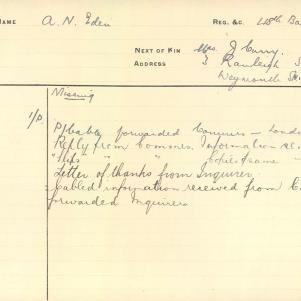 NAME A. N. Eden REG. &C. 48th Ba
NEXT OF KIN Mrs. J Curry.
ADDRESS 3 Ranleigh S
Weymouth St
Missing
forwarded Commrs - Lond
Reply from Commrs. Information re
" " Copies same
Letter of thanks from Inquirer.
Cabled information received from C
forwarded Inquirers